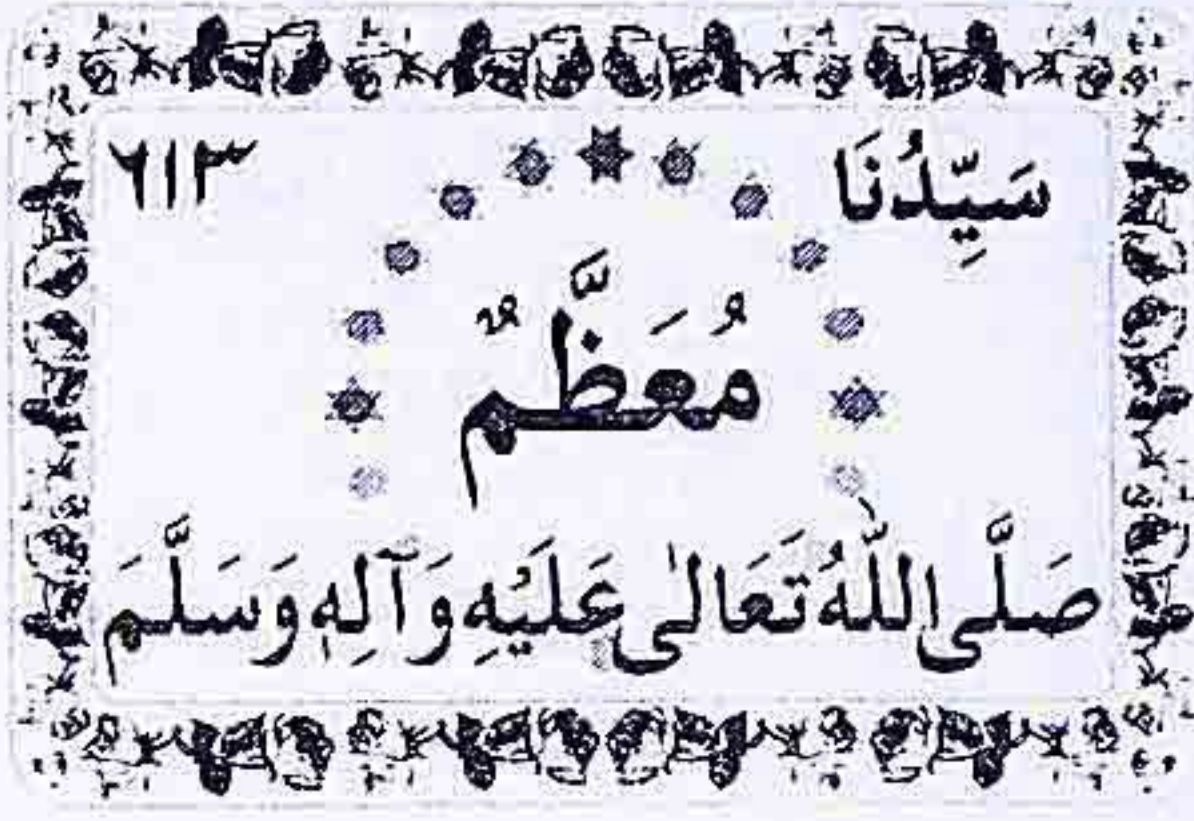 سَيِّدُنَا ٦١٣
مُعَظَّمٌ
صَلَّى اللّٰهُ تَعَالٰى عَلَيْهِ وَآلِهٖ وَسَلَّمَ